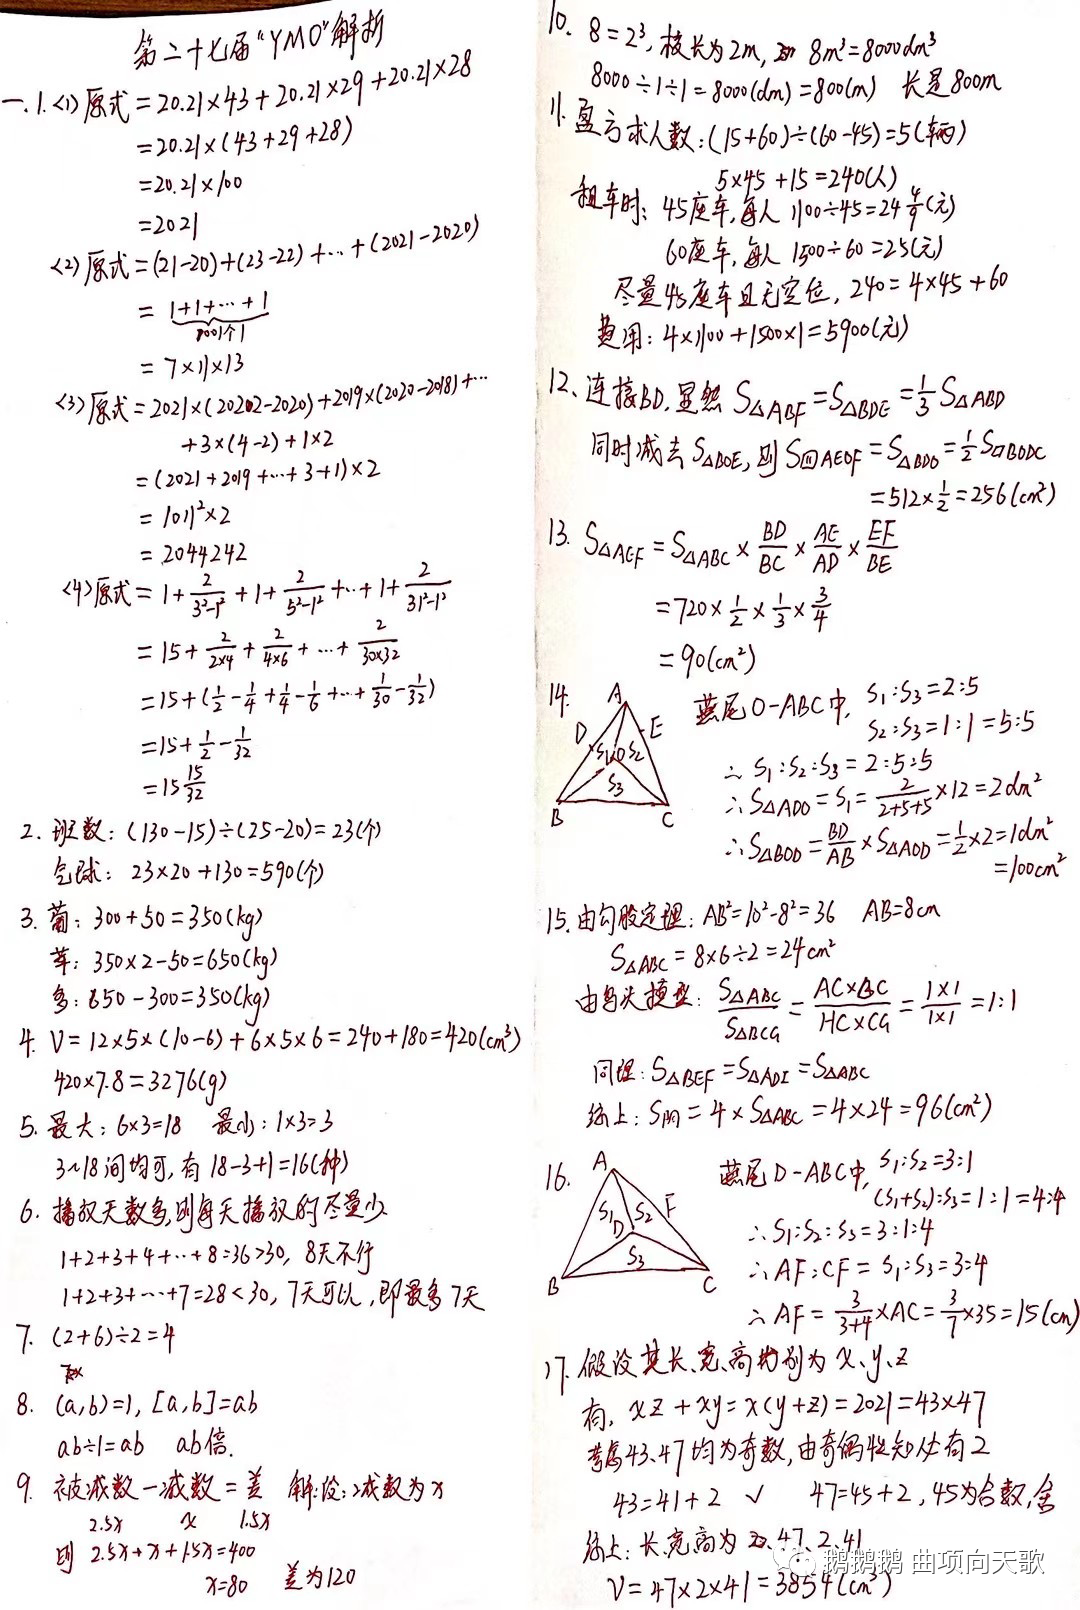 第二十七届“YMO”解析
一.1.<1>原式=20.21×43+20.21×29+20.21×28
=20.21×(43+29+28)
=20.21×100
=2021
<2>原式=(21-20)+(23-22)+…+(2021-2020)
= 1+1+…+1
1001个1
= 7×11×13
<3>原式=2021×(20202-2020)+2019×(2020-2018)+…
+3×(4-2)+1×2
=(2021+2019+…+3+1)×2
= 1011²×2
= 2044242
<4>原式= 1+2/(3²-1²)+1+2/(5²-1²)+…+1+2/(31²-1²)
= 15+2/(2×4)+2/(4×6)+…+2/(30×32)
=15+(1/2-1/4+1/4-1/6+…+1/30-1/32)
=15+1/2-1/32
=15 15/32
2. 班数: (130-15)÷(25-20)=23(个)
气球: 23×20+130=590(个)
3. 葡: 300+50=350(kg)
苹: 350×2-50=650(kg)
多: 650-300=350(kg)
4. V=12×5×(10-6)+6×5×6=240+180=420(cm³)
420×7.8=3276(g)
5. 最大: 6×3=18 最小: 1×3=3
3~18间均可,有 18-3+1=16(种)
6. 播放天数多,则每天播放的尽量少
1+2+3+4+…+8=36>30, 8天不行
1+2+3+…+7=28<30, 7天可以,即最多7天
7. (2+6)÷2=4
8. (a,b)=1, [a,b]=ab
ab÷1=ab ab倍.
9. 被减数-减数=差 解:设:减数为x
2.5x x 1.5x
则 2.5x+x+1.5x=400
x=80 差为120
10. 8=2³, 棱长为2m, 8m³=8000dm³
8000÷1÷1=8000(dm)=800(m) 长是800m
11. 盈亏求人数:(15+60)÷(60-45)=5(辆)
5×45+15=240(人)
租车时: 45座车,每人 1100÷45=24 4/9(元)
60座车,每人 1500÷60=25(元)
尽量45座车且无空位, 240=4×45+60
费用: 4×1100+1500×1=5900(元)
12、连接BD,显然 S△ABF=S△BDE=1/3 S△ABD
同时减去S△BOE,则S四AEOF=S△BDO=1/2 S▱BODC
=512×1/2=256(cm²)
13. S△AEF=S△ABC×BD/BC×AE/AD×EF/BE
=720×1/2×1/3×3/4
=90(cm²)
14. 燕尾O-ABC中, S₁:S₃=2:5
S₂:S₃=1:1=5:5
∴S₁:S₂:S₃=2:5:5
∴S△ADO=S₁=2/(2+5+5)×12=2dm²
∴S△BOD=BD/AB×S△AOD=1/2×2=1dm²
=100cm²
A
D E
S₁ O S₂
S₃
B C
15. 由勾股定理: AB²=10²-8²=36 AB=8cm
S△ABC=8×6÷2=24cm²
由鸟头模型: S△ABC/S△BCG=AC×BC/HC×CG=1×1/1×1=1:1
同理: S△BEF=S△ADI=S△ABC
综上: S阴=4×S△ABC=4×24=96(cm²)
16. 燕尾D-ABC中, S₁:S₂=3:1
(S₁+S₂):S₃=1:1=4:4
∴S₁:S₂:S₃=3:1:4
∴AF:CF=S₁:S₃=3:4
∴AF=3/(3+4)×AC=3/7×35=15(cm)
A
F
S₁ S₂
D
S₃
B C
17. 假设其长、宽、高分别为x、y、z
有, xz+xy=x(y+z)=2021=43×47
考虑43、47均为奇数,由奇偶性知必有2
43=41+2 √ 47=45+2, 45为合数,舍
综上: 长、宽、高为 47、2、41
V=47×2×41=3854(cm³)
鹅鹅鹅 曲项向天歌